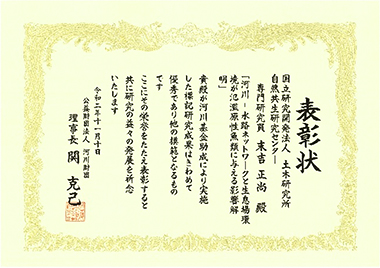 表彰状
国立研究開発法人 土木研究所
自然共生研究センター
専門研究員 末吉 正尚 殿
「河川-水路ネットワークと生息場環
境が氾濫原性魚類に与える影響解
明」
貴殿が河川基金助成により実施
した標記研究成果はきわめて
優秀であり他の模範となるもの
です
ここにその栄誉をたたえ表彰すると
共に研究の益々の発展を祈念
いたします
令和二年十一月十日
公益財団法人 河川財団
理事長 関 克己